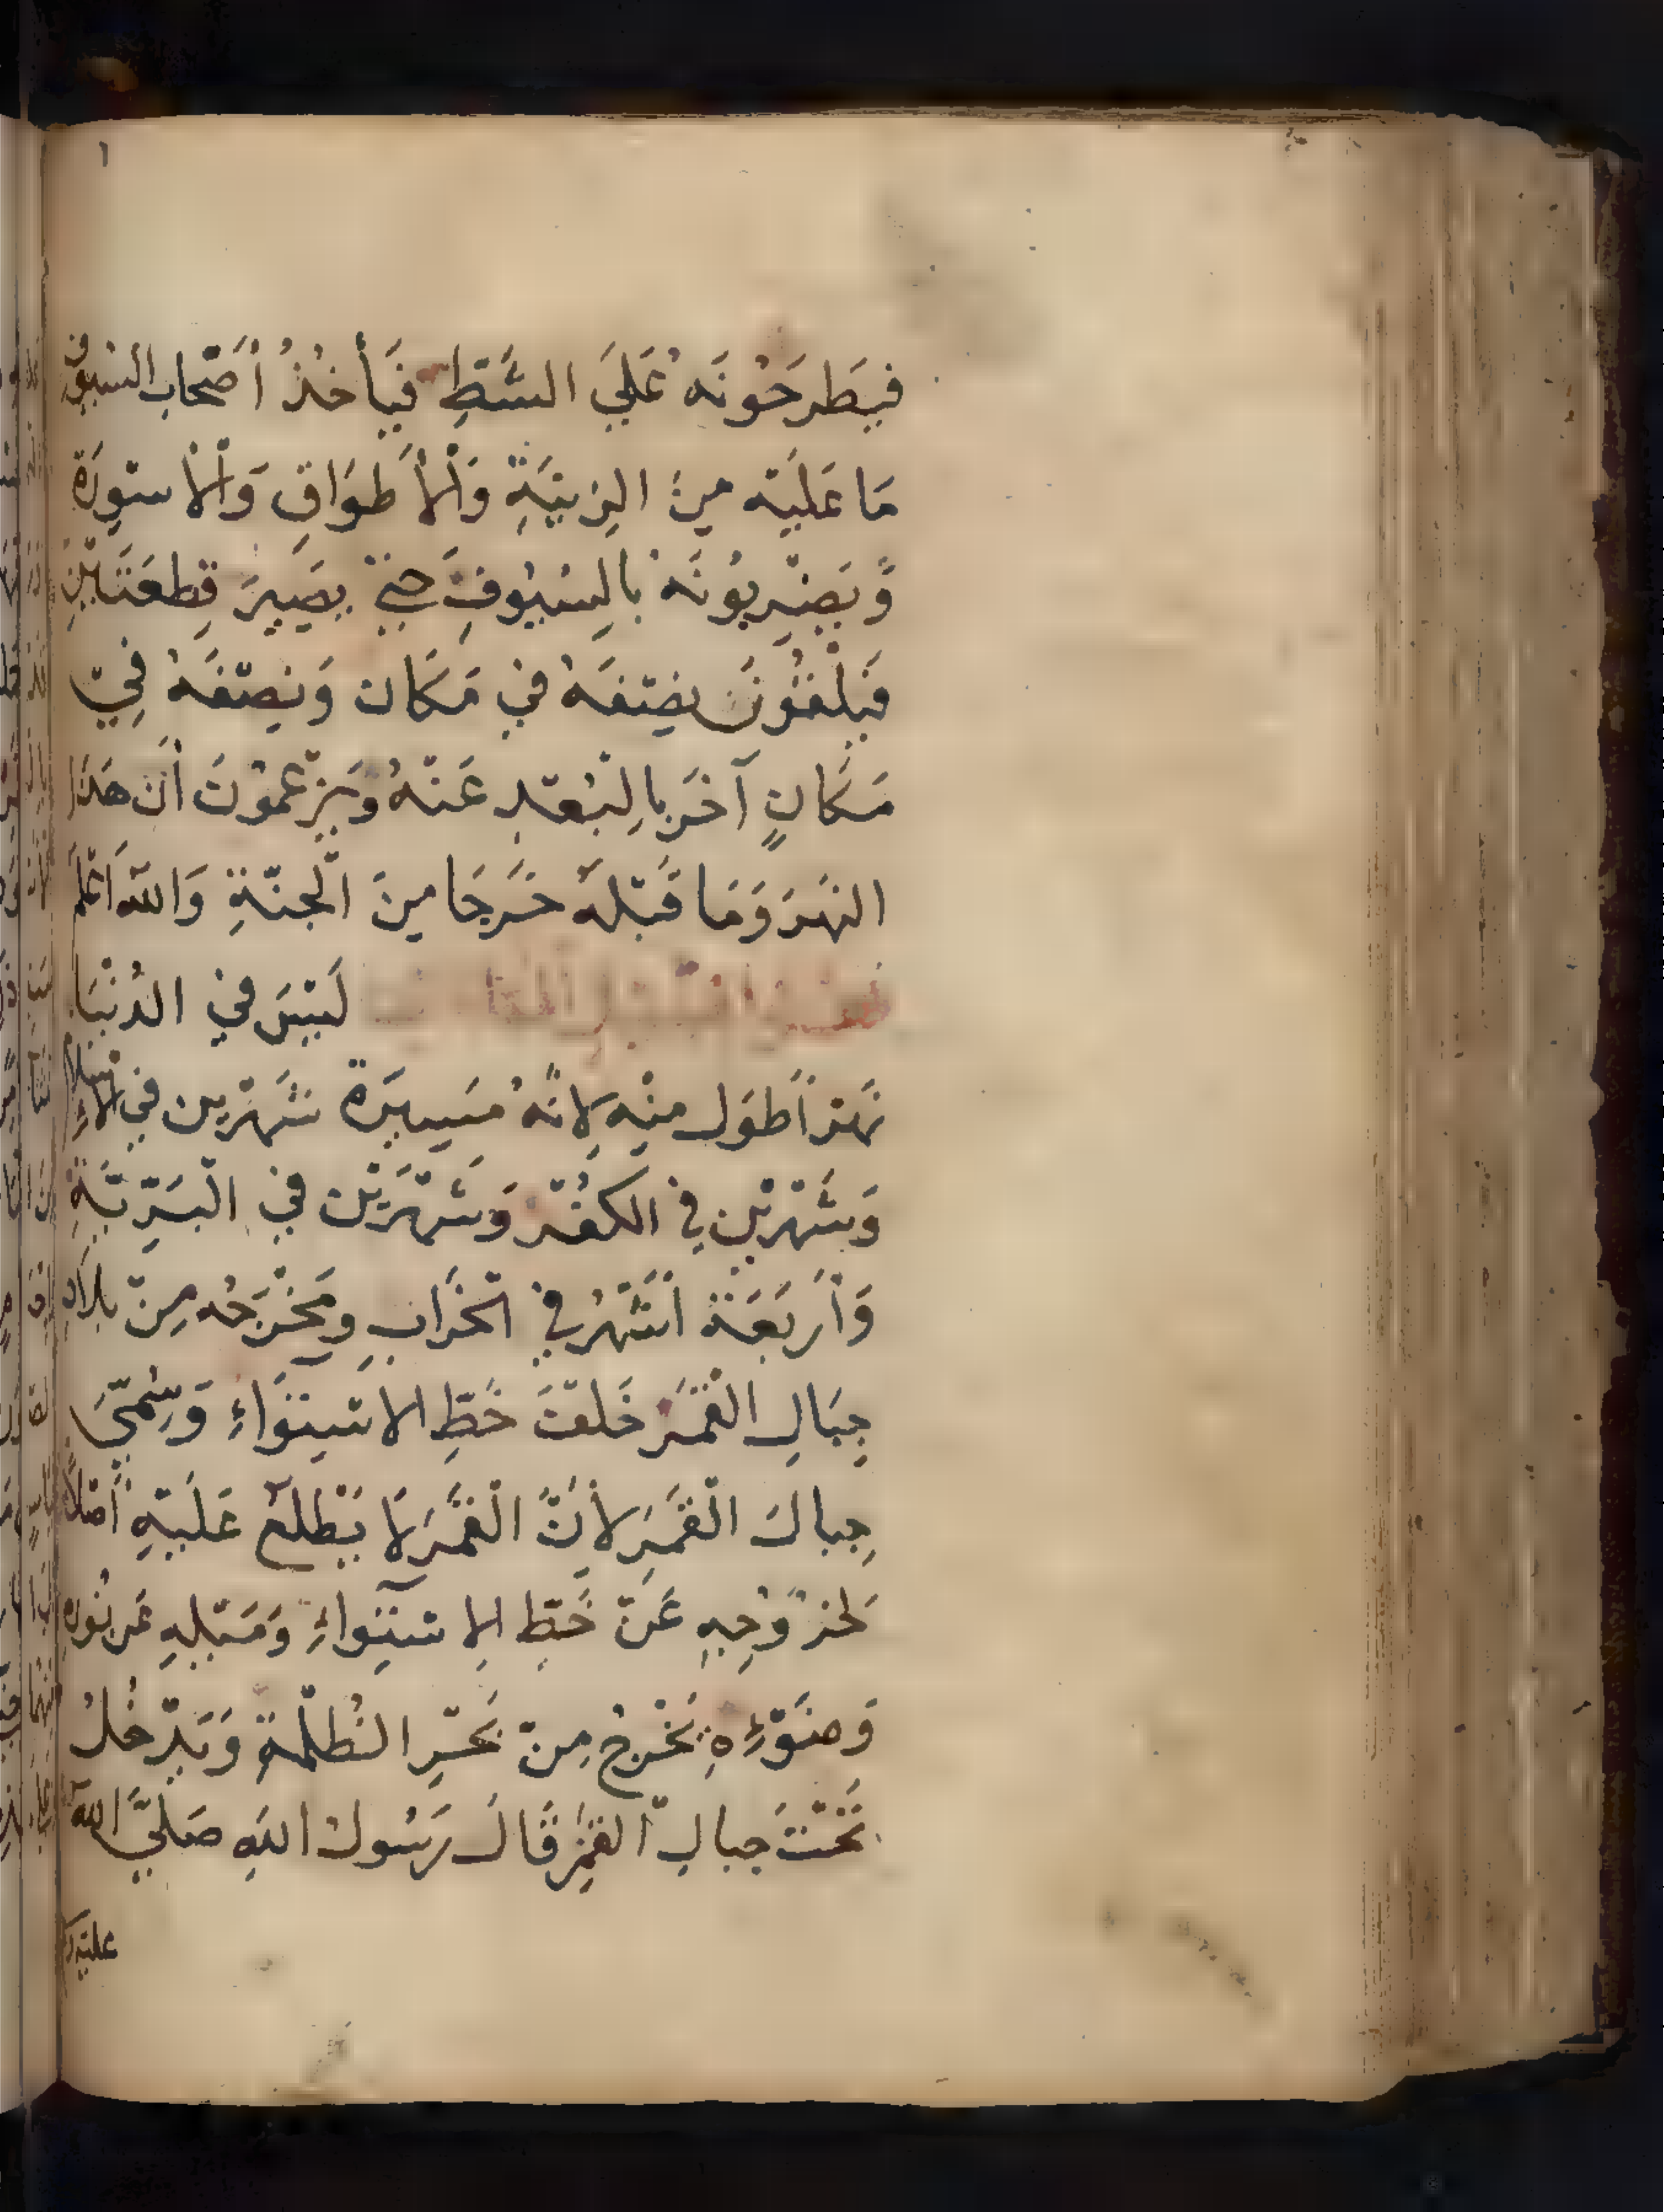 فَيَطرَحُونَه عَلَى الشَّطِّ فَيَأخُذُ أصْحَابُ السُّيُوفِ
مَا عَلَيْه مِنَ الزِينَةِ وَالْأَطوَاقِ وَالْأسْوِرَةِ
وَيَضْرِبُونَهُ بالسُيُوفِ حتىّ يَصِيرَ قِطعَتَيْنِ
فَيُلقُونَ نِصْفَهُ في مَكَان وَنِصْفَهُ فِي
مَكَانٍ آخَرَ بالْبُعْدِ عَنْهُ وَيَزْعمُونَ أنّ هَذا
النهَرَ وَمَا قَبْلَهُ خَرَجَا مِنَ الْجنّةِ وَاللهُ اَعْلَم
لَيْسَ في الدُنْيَا
نَهرٌ أطوَل منْهُ لِانَّهُ مَسِيرَةَ شَهْرَين في الْاِسْلامِ
وَشَهْرَيْن في الكُفْر وَشَهْرَيْن في الْبَرِّيَّةِ
وَأرْبَعَة أشْهُرٍ في الخَرَابِ وَمَخْرَجُه مِنْ بلَادِ
جِبَالِ الْقَمَر خَلْفَ خَطِّ الاسْتِوَاءِ وَسُمّيَ
جِبالَ الْقَمَر لأَنَّ الْقَمَرَ لَا يَطْلعُ عَلَيْهِ أصْلًا
لِخرُوجِهِ عَنْ خَطِّ الِاسْتِوَاءِ وَمَيْلِهِ عَن نُورِهِ
وَضَوْءِهِ يَخْرجُ مِنْ بَحْرِ الظُّلْمَةِ وَيَدْخُلُ
تَحْتَ جبالِ الْقَمَر قَالَ رَسُولُ اللهِ صَلَّى اللهُ
عليْهِ و